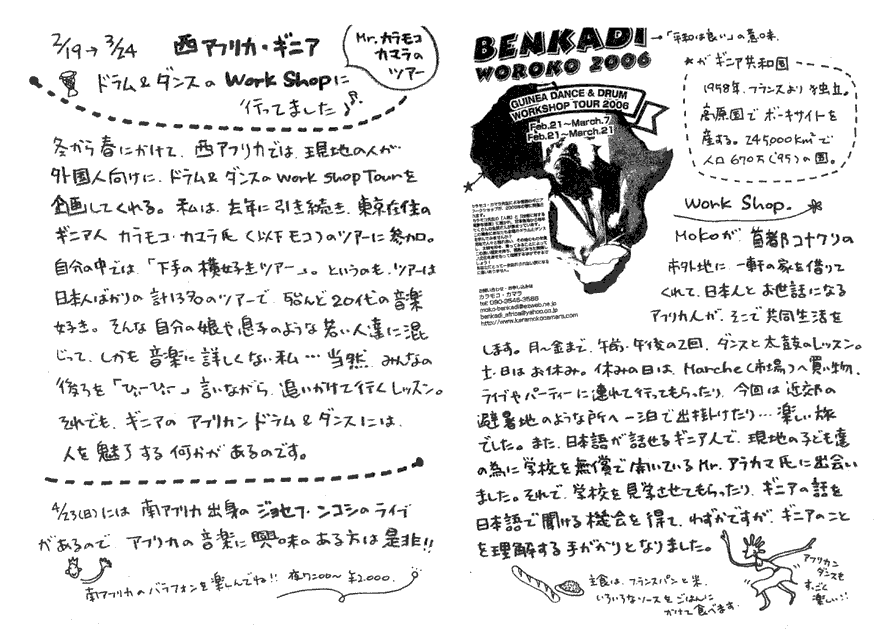 2/19→3/24 西アフリカ・ギニア
Mr.カラモコ
カマラの
ツアー
ドラム&ダンスの Work Shopに
行ってました♪
冬から春にかけて、西アフリカでは、現地の人が
外国人向けに、ドラム&ダンスのWork Shop Tourを
企画してくれる。私は、去年に引き続き、東京在住の
ギニア人 カラモコ・カマラ氏（以下モコ）のツアーに参加。
自分の中では、「下手の横好きツアー」。というのも、ツアーは
日本人ばかりの計13名のツアーで、殆んど20代の音楽
好き。そんな自分の娘や息子のような若い人達に混
じって、しかも音楽に詳しくない私…当然、みんなの
後ろを「ひぃーひぃー」言いながら、追いかけて行くレッスン。
それでも、ギニアの アフリカンドラム&ダンスには、
人を魅了する何かがあるのです。
4/23(日)には 南アフリカ出身の ジョセフ・ンコシのライブ
があるので、アフリカの音楽に興味のある方は是非!!
南アフリカのバラフォンを楽しんでね!! 夜7:00〜 ¥2,000.
BENKADI →「平和は良い」の意味.
WOROKO 2006
GUINEA DANCE & DRUM
WORKSHOP TOUR 2006
Feb.21〜March.7
Feb.21〜March.21
お問い合わせ・お申し込みは
カラモコ・カマラ
tel:090-3546-3588
moko-benkadi@ezweb.ne.jp
benkadi_africa@yahoo.co.jp
http://www.karamokocamara.com
★が ギニア共和国
1958年、フランスより独立。
高原国でボーキサイトを
産する。245,000km²で
人口670万('95)の国。
Work Shop.
MOKOが、首都コナクリの
郊外地に、一軒の家を借りて
くれて、日本人と お世話になる
アフリカ人が、そこで共同生活を
します。月〜金まで、午前・午後の2回、ダンスと太鼓のレッスン。
土・日はお休み。休みの日は、Marche(市場)へ買い物、
ライブやパーティーに連れて行ってもらったり、今回は近郊の
避暑地のような所へ一泊で出掛けたり…楽しい旅
でした。また、日本語が話せるギニア人で、現地の子ども達
の為に学校を無償で開いているMr.アラカマ氏に出会い
ました。それで、学校を見学させてもらったり、ギニアの話を
日本語で聞ける機会を得て、わずかですが、ギニアのこと
を理解する手がかりとなりました。
主食は、フランスパンと米.
いろいろなソースをごはんに
かけて食べます.
アフリカン
ダンスも
すっごく
楽しい!!